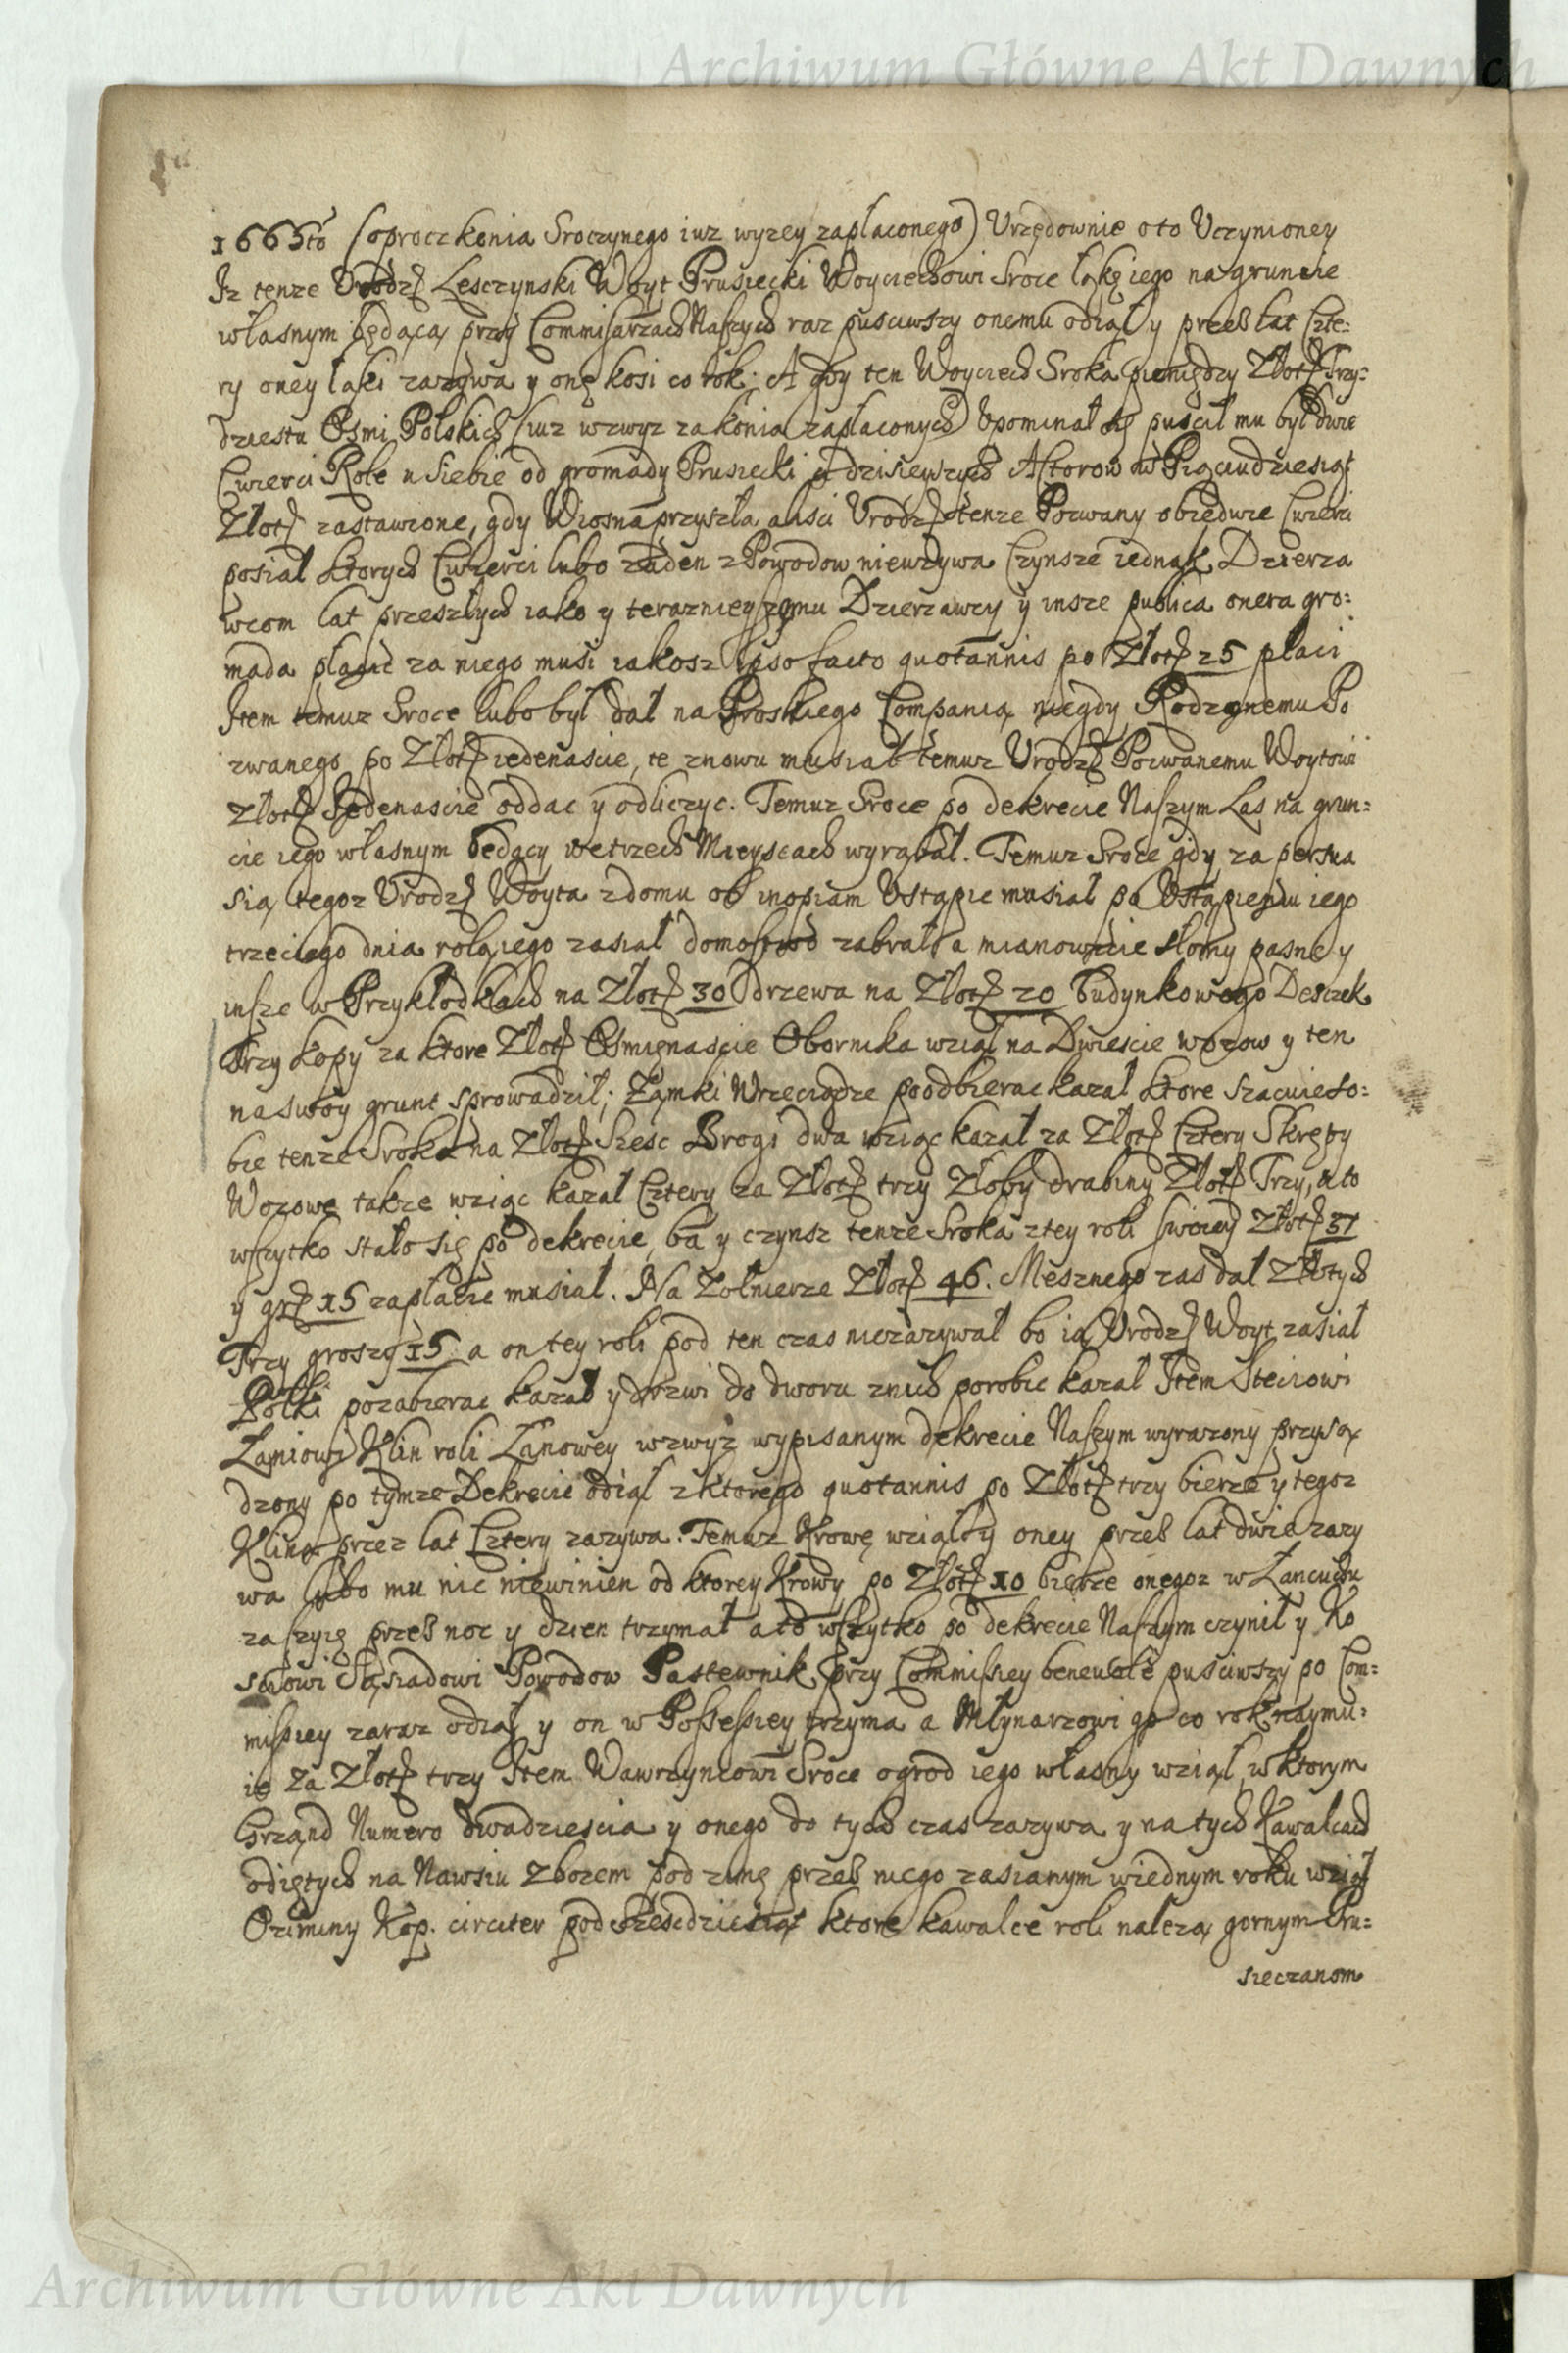 Archiwum Główne Akt Dawnych
1665to (oprocz konia Sroczynego iuz wyzey zapłaconego) Vrzędownie oto Vczynioney
Iz tenze Vrodz Lesczynski Woyt Prusiecki Woyciechowi Sroce łąkę iego na gruncie
własnym będącą przy Commisarzach Naszych raz pusciwszy onemu odiął y przes lat Czte:
ry oney łąki zazywa y onę kosi co rok. A gdy ten Woyciech Sroka pieniędzy Złot Trzy:
dziestu Osmi Polskich (iuz wzwyz za konia zapłaconych) Vpominał się puscił mu był dwie
Cwierci Role u siebie od gromady Prusiecki y dzisieyszych Actorow w Pięciudziesiąt
Złot zastawione, gdy Wiosna przyszła alisci Vrodz tenze Pozwany obiedwie Cwierci
posiał ktorych Cwierci lubo zaden z Powodow nieuzywa Czynsze iednak Dzierza
wcom lat przeszłych iako y teraznieyszemu Dzierzawcy y insze publica onera gro:
mada płacic za niego musi iakosz ipso facto quotannis po Złot 25 płaci
Item temuz Sroce lubo był dał na Proskiego Companią niegdy Rodzonemu Po
zwanego po Złot iedenascie, te znowu musiał temuz Vrodz Pozwanemu Woytowi
Złot Jedenascie oddac y odliczyc. Temuz Sroce po dekrecie Naszym Las na grun:
cie iego własnym będący we trzech Mieyscach wyrąbał. Temuz Sroce gdy za persua
sią tegoz Vrodz Woyta z domu ob inopiam Vstąpic musiał po Vstąpieniu iego
trzeciego dnia rolą iego zasiał domostwo zabrał a mianowicie słomy pasne y
insze w Przykłodkach na Złot 30 drzewa na Złot 20 Budynkowego Desczek
Trzy kopy za ktore Złot Osmięnascie Obornika wziął na Dwiescie wozow y ten
na swoy grunt sprowadził; Zamki Wrzeciądze poodbierac kazał ktore szacuie so:
bie tenze Sroka na Złot Szesc Brogi dwa wziąc kazał za Złot Cztery Skręty
Wozowe takze wziąc kazał Cztery za Złot trzy Złoby drabiny Złot Trzy, a to
wszytko stało się po dekrecie, ba y czynsz tenze Sroka z tey roli swoiey Złot 37
y gr 15 zapłacic musiał. Na Zołnierze Złot 46. Mesznego zas dał Złotych
Trzy groszy 15 a on tey roli pod ten czas niezazywał bo ią Vrodz Woyt zasiał
Połki pozabierac kazał y drzwi do dworu znich porobic kazał Item Steciowi
Zaniowi Klin roli Łanowey wzwyz wypisanym dekrecie Naszym wyrazony przysą
dzony po tymze Dekrecie odiął z ktorego quotannis po Złot trzy bierze y tegoz
Klina przez lat Cztery zazywa. Temuz Krowę wziął y oney przes lat dwie zazy
wa lubo mu nic niewinien od ktorey Krowy po Złot 10 bierze onegoz w Łancuchu
za szyię przes noc y dzien trzymał a to wszytko po dekrecie Naszym czynił y Ko
sciowi Sąsiadowi Powodow Pastewnik przy Commissiey benevole pusciwszy po Com:
missiey zaraz odiął y on w Possessiey trzyma a Młynarzowi go co rok naymu:
ie za Złot trzy Item Wawrzyncowi Sroce ogrod iego własny wziął, w ktorym
Grząnd Numero dwadziescia y onego do tych czas zazywa y na tych Kawalcach
odiętych na Nawsiu Zbozem pod zimę przes niego zasianym w iednym roku wziął
Oziminy Kop. circiter pod Szescdziesiąt ktore kawalce roli nalezą gornym Pru:
sieczanom
Archiwum Główne Akt Dawnych